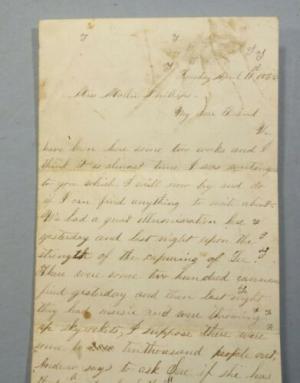 Sunday April 1865
Mrs Phillips
My dear Friend
We
have been here some two weeks and I
think it is almost time I was writing
to you which I will now try and do
if I can find anything to write about
We had a great illumination here
yesterday and last night upon the
strength of the capturing of Lee.
There were some two hundred cannons
fired yesterday and then last night
they had music and were throwing
up skyrockets, I suppose there were
some ten thousand people out,
Andrew says to ask if she has